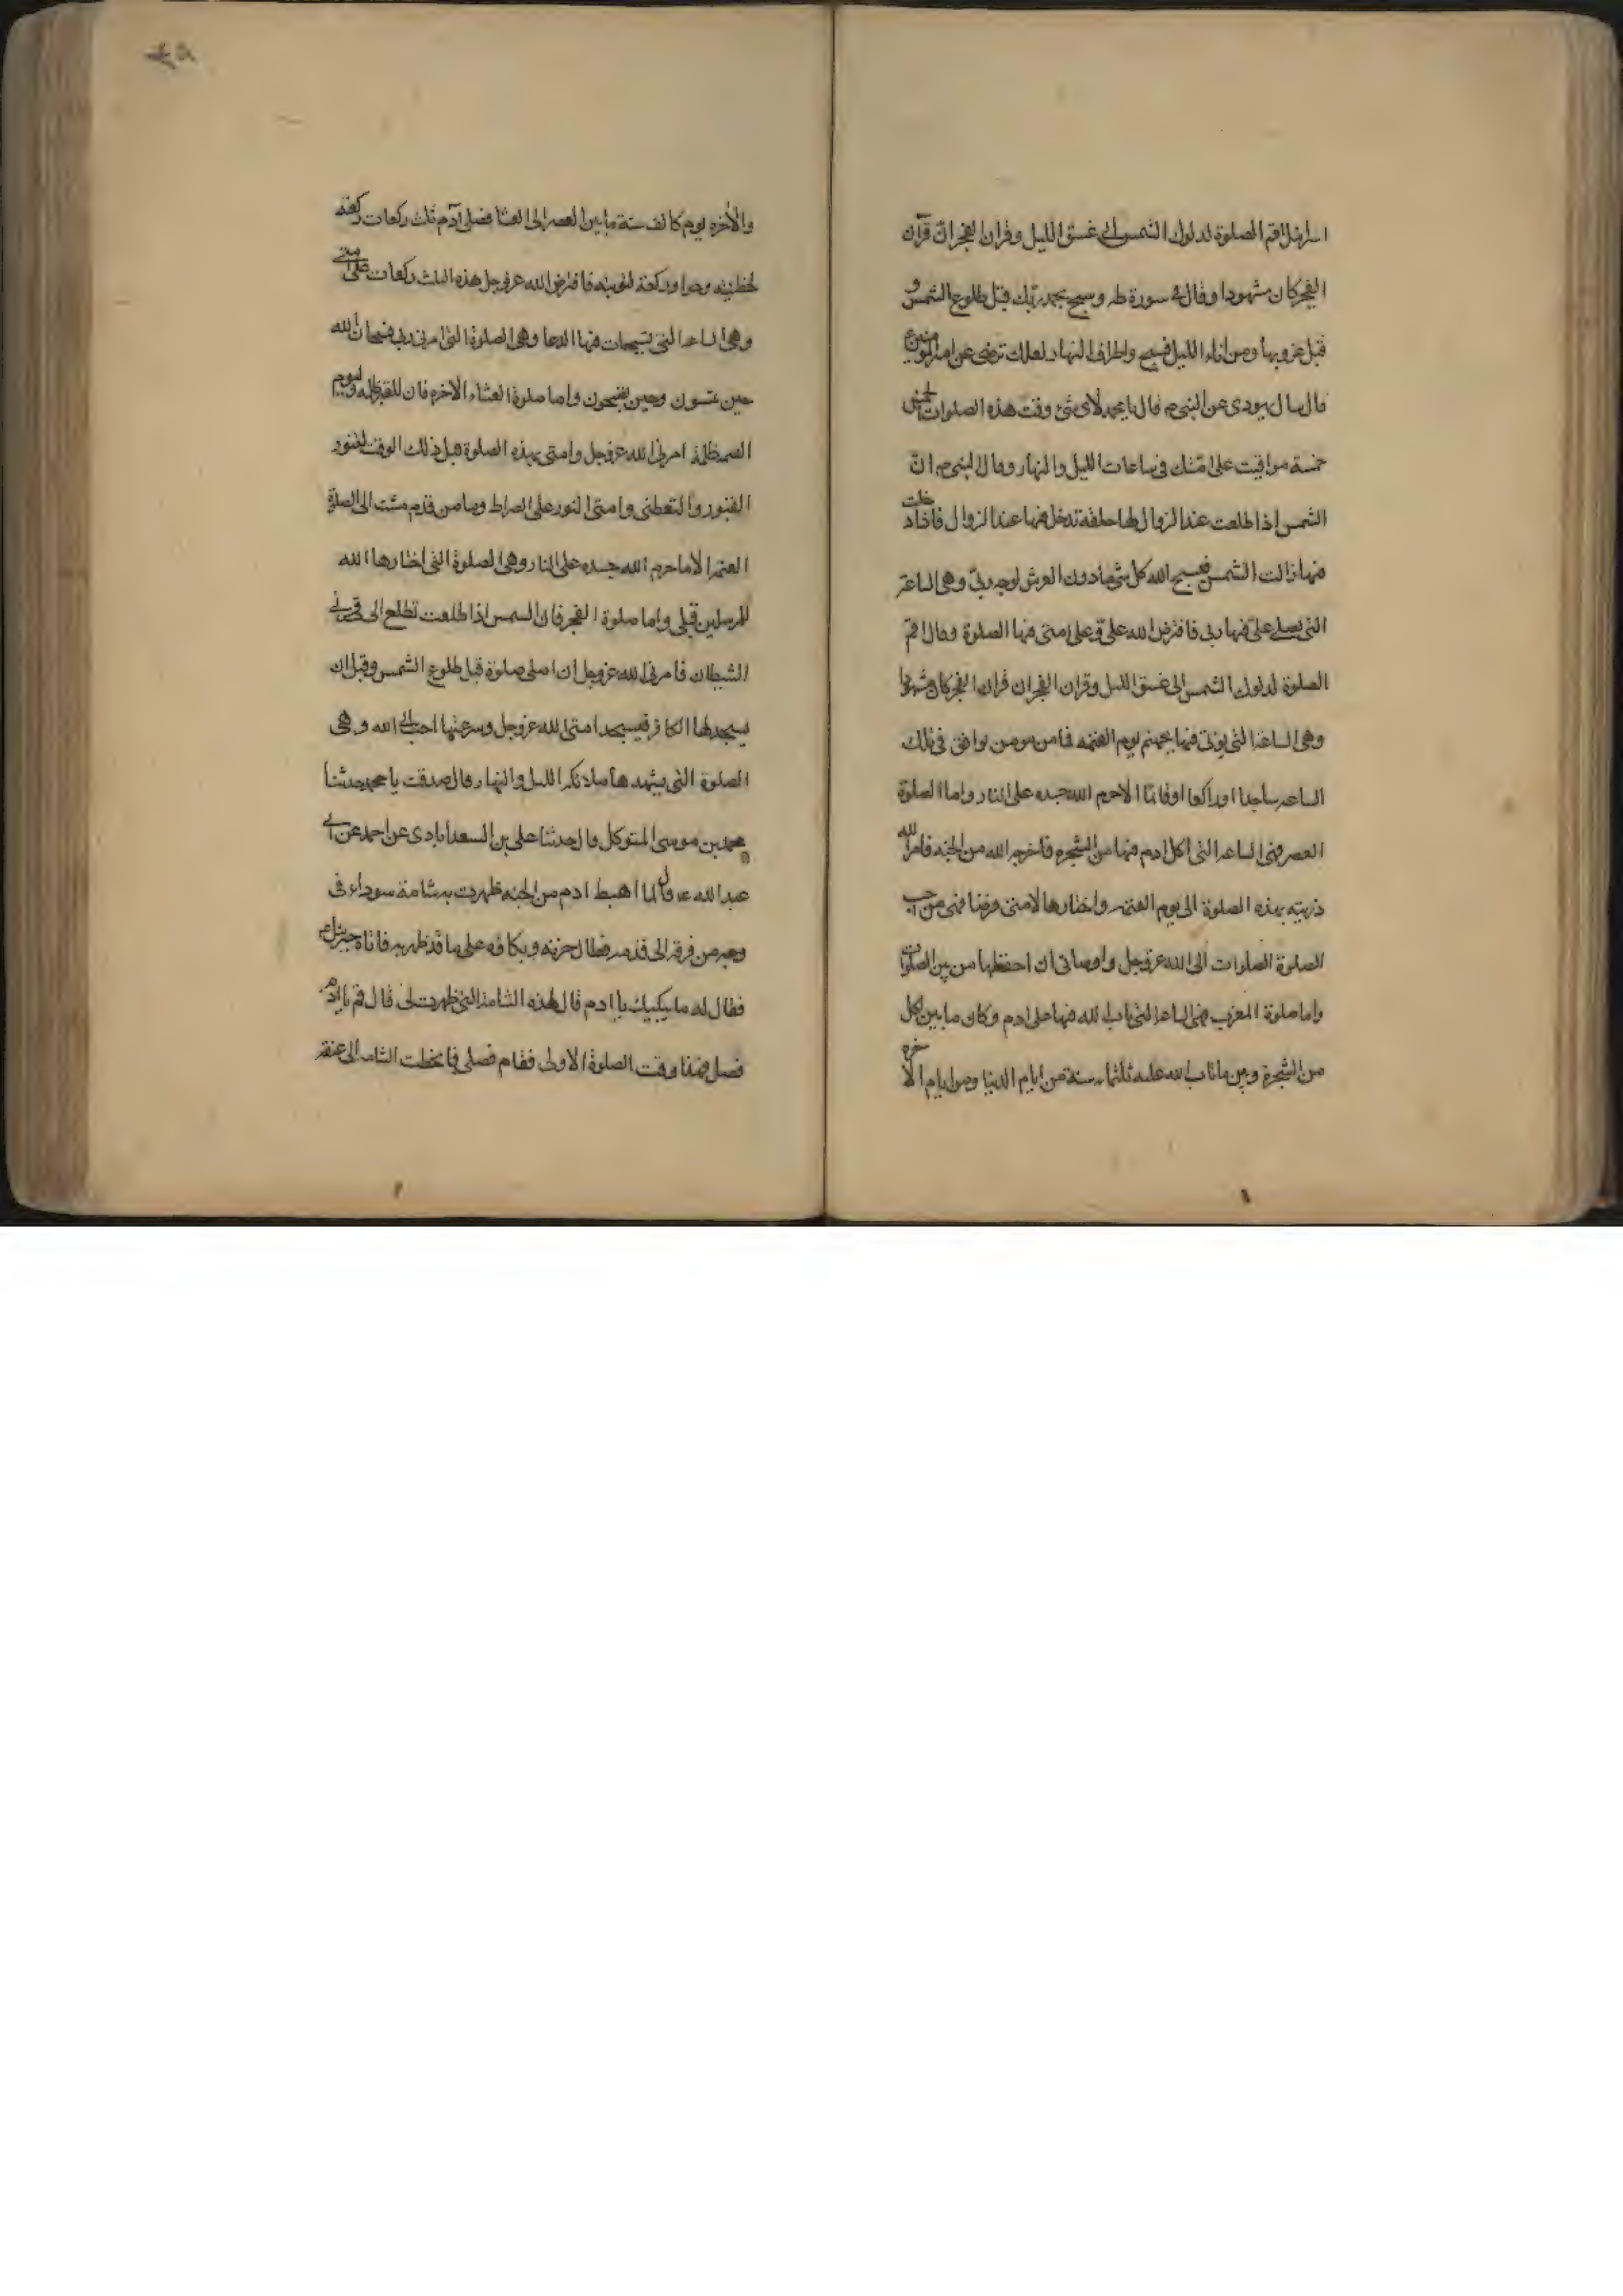 اسرائيل اقم الصلوة لدلوك الشمس الى غسق الليل وقران الفجر انّ قرآن
الفجر كان مشهودا وقال فى سورة طه وسبح بحمد ربّك قبل طلوع الشمس و
قبل غروبها ومن اناء الليل فسبح واطراف النهار لعلك ترضى عن امير المؤمنين ع
قال سال يهودى عن النبى ص قال يا محمد لاى شئ وقت هذه الصلوات الخمس
خمسة مواقيت على امّتك فى ساعات الليل والنهار وقال النبى ص انّ
الشمس اذا طلعت عند الزوال لها حلقة تدخل فيها عند الزوال فاذا دخلت
فيها زالت الشمس فيسبح الله كل شئ مادون العرش لوجه ربّى وهى الساعة
التى يصلى علىّ فيها ربى فافترض الله علىّ وعلى امتى فيها الصلوة وقال اقم
الصلوة لدلوك الشمس الى غسق الليل وقران الفجر ان قران الفجر كان مشهودا
وهى الساعة التى يوتى فيها بجهنم يوم القيمه فما من مومن يوافق فى تلك
الساعه ساجدا او راكعا او قائمّا الا حرم الله جسده على النار واما الصلوة
العصر فهى الساعه التى اكل ادم فيها من الشجره فاخرجه الله من الجنه فامر الله
ذريته بهذه الصلوة الى يوم القيمه واختارها لامتى فرضا فهى من احب
الصلوة الصلوات الى الله عزوجل واوصانى ان احفظها من بين الصلوات
واما صلوة المغرب فهى الساعة التى تاب الله فيها على ادم وكان ما بين اكل
من الشجرة وبين ما تاب الله عليه ثلثمائه سنة من ايام الدنيا ومن ايام الاخره
والاخره يوم كالف سنة ما بين العصر الى العشا فصلى آدم ثلث ركعات ركعة
لخطيئته و وركعة لتوبته فافترض الله عزوجل هذه الثلث ركعات على امتى
وهى الساعة التى فيها الدعا وهى الصلوة التى امرنى ربى فسبحان الله
حين تمسون وحين تصبحون واما صلوة العشاء الاخره فان للقبر ظلمه وليوم
القيمه ظلمة امرنى الله عزوجل وامتى بهذه الصلوة فى ذلك الوقت لتنور
القبور والتعطنى وامتى النور على الصراط وما من قدم مشت الى الصلوة
العتمه الا ما حرم الله جسده على النار وهى الصلوة التى اختارها الله
للمرسلين قبلى واما صلوة الفجر فان الشمس اذا طلعت تطلع الى قرنى
الشيطان فامرنى الله عزوجل ان اصلى صلوة قبل طلوع الشمس وقبل ان
يسجد لها الكافر فيسجد امتى لله عزوجل وسرعتها احب الى الله وهى
الصلوة التى يشهدها ملائكة الليل والنهار قال صدقت يا محمد حدثنا
محمد بن موسى المتوكل قال حدثنا على بن السعدابادى عن احمد عن ابى
عبد الله ع قال لما اهبط ادم من الجنه ظهرت به شامة سوداء فى
وجهه من فرقه الى قدمه فطال حزنه وبكاؤه على ما قد ظهر به فاتاه جبرئيل ع
فقال له ما يبكيك يا ادم قال لهذه الشامة التى ظهرت لى قال قم يا ادم
فصل فهذا وقت الصلوة الاولى فقام فصلى فانحطت الشامه الى عنقه